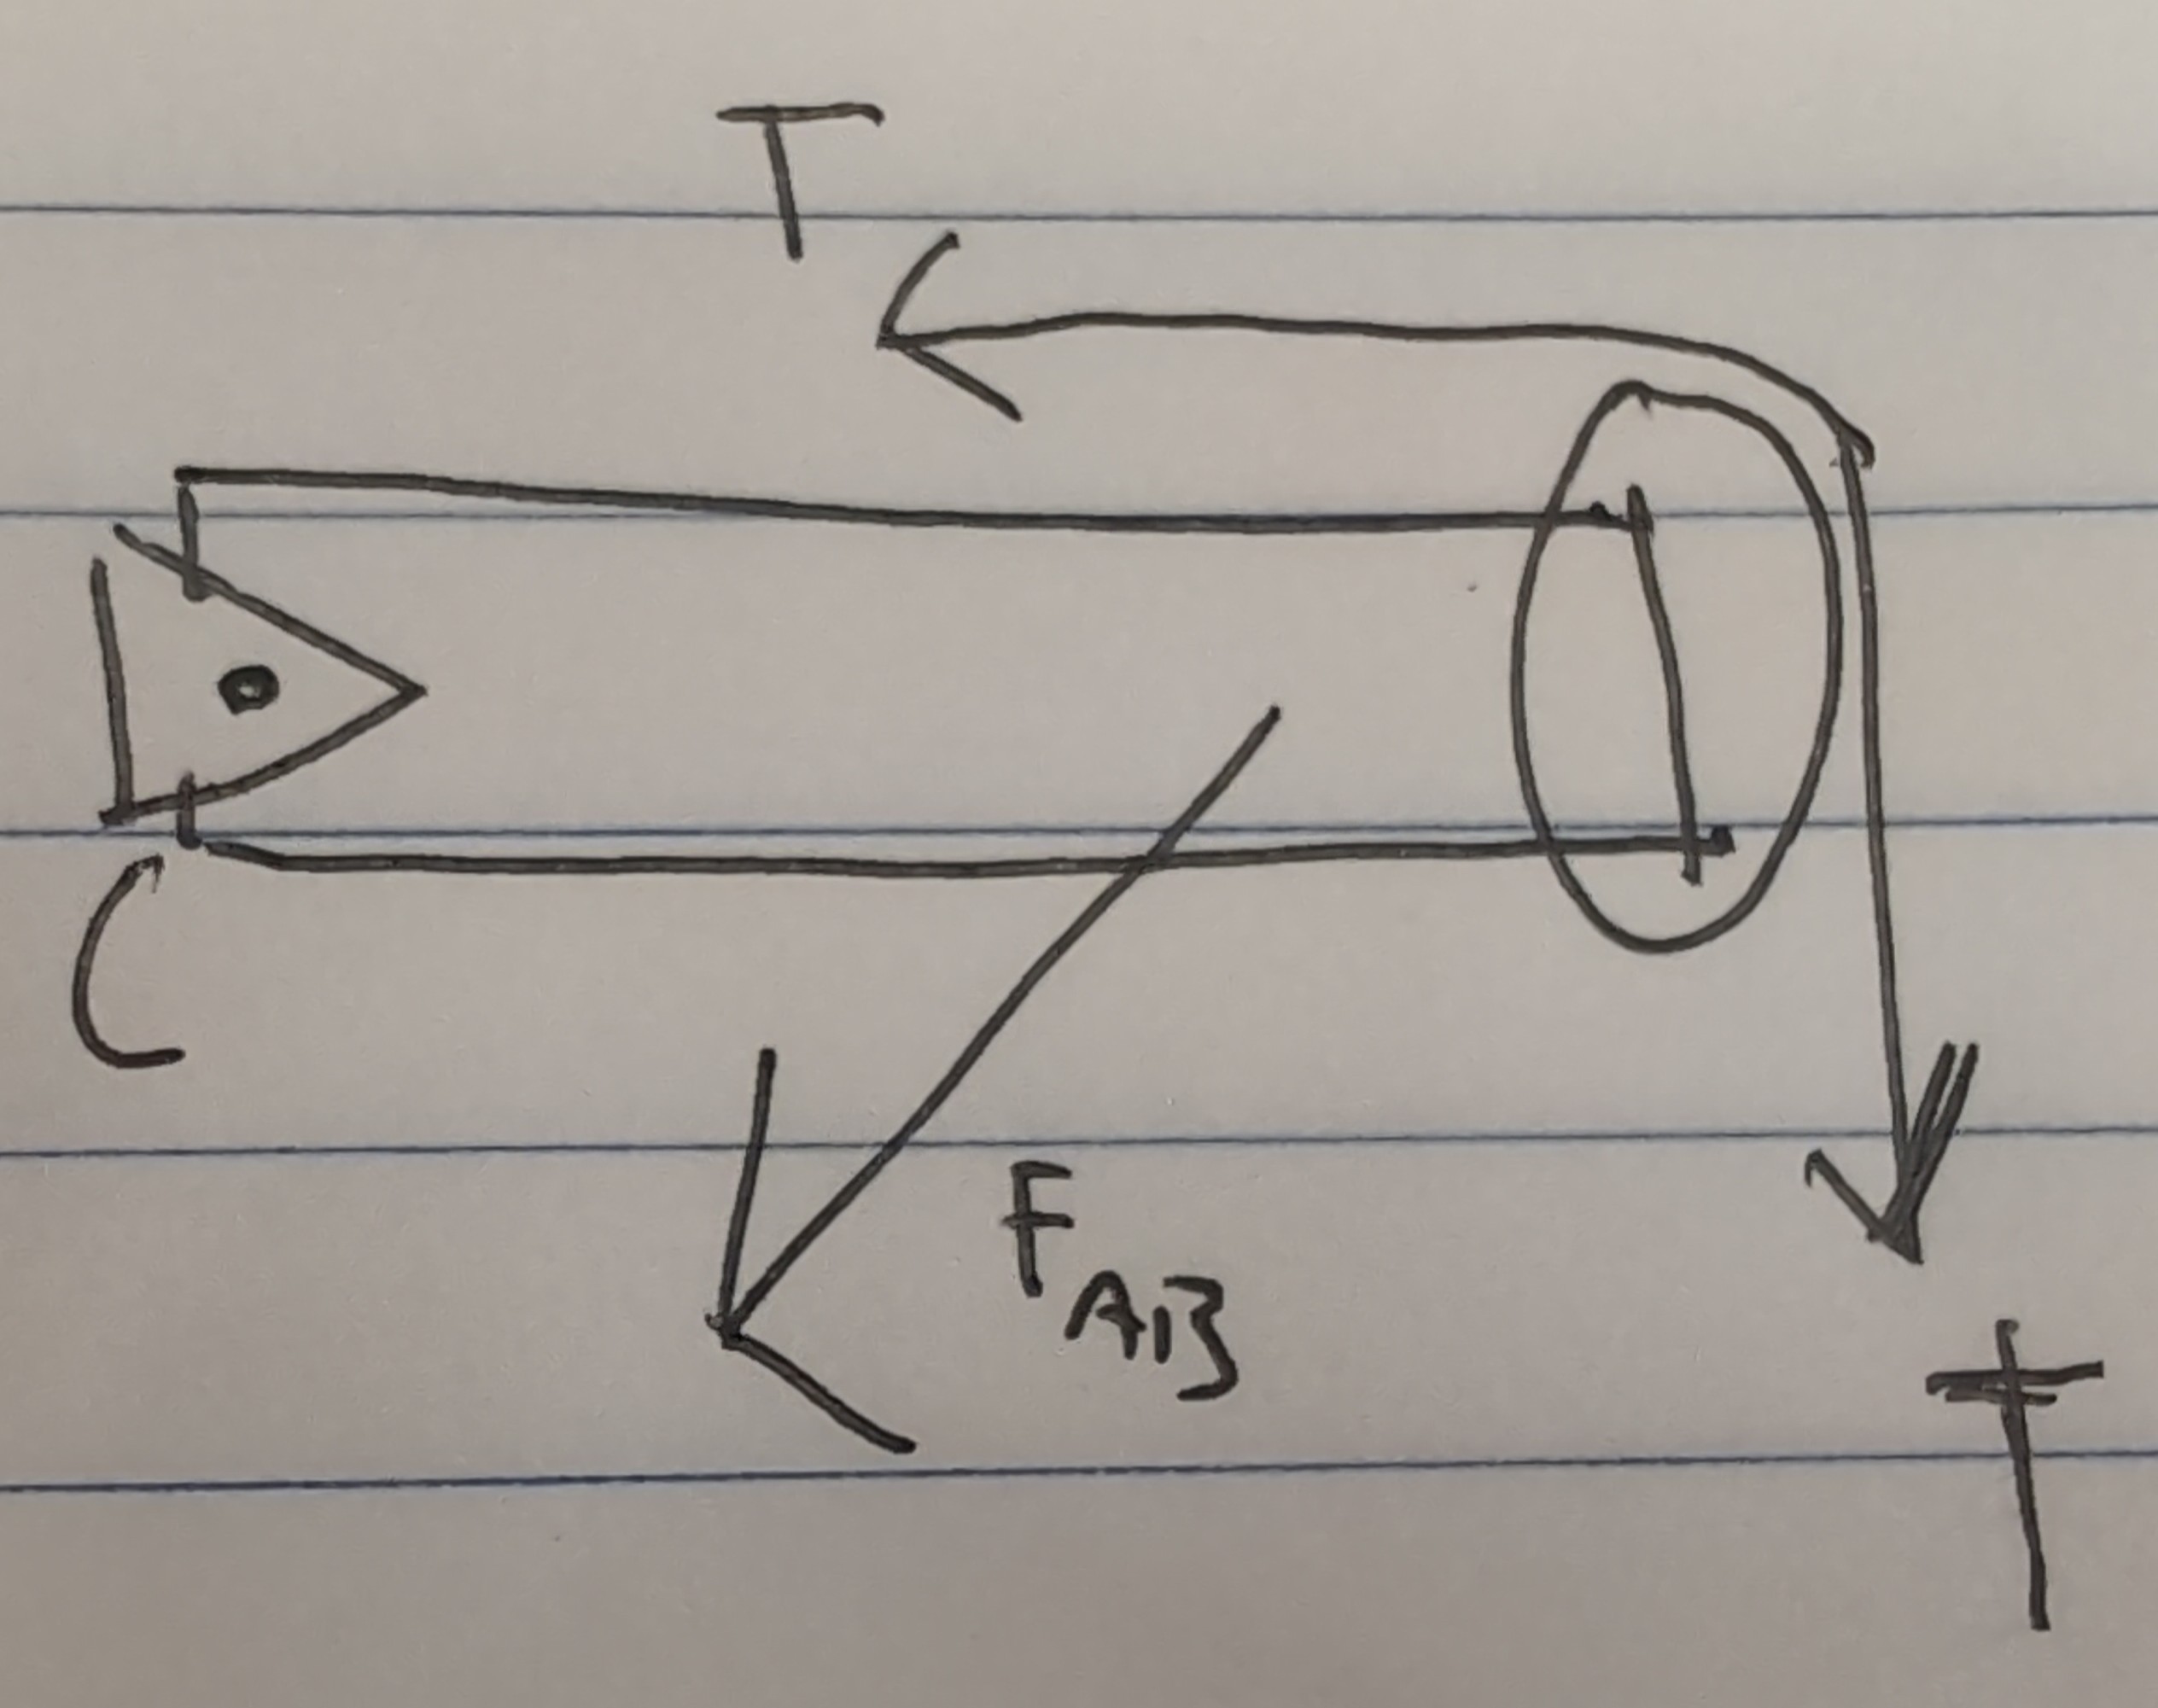 T
C
F AB
T